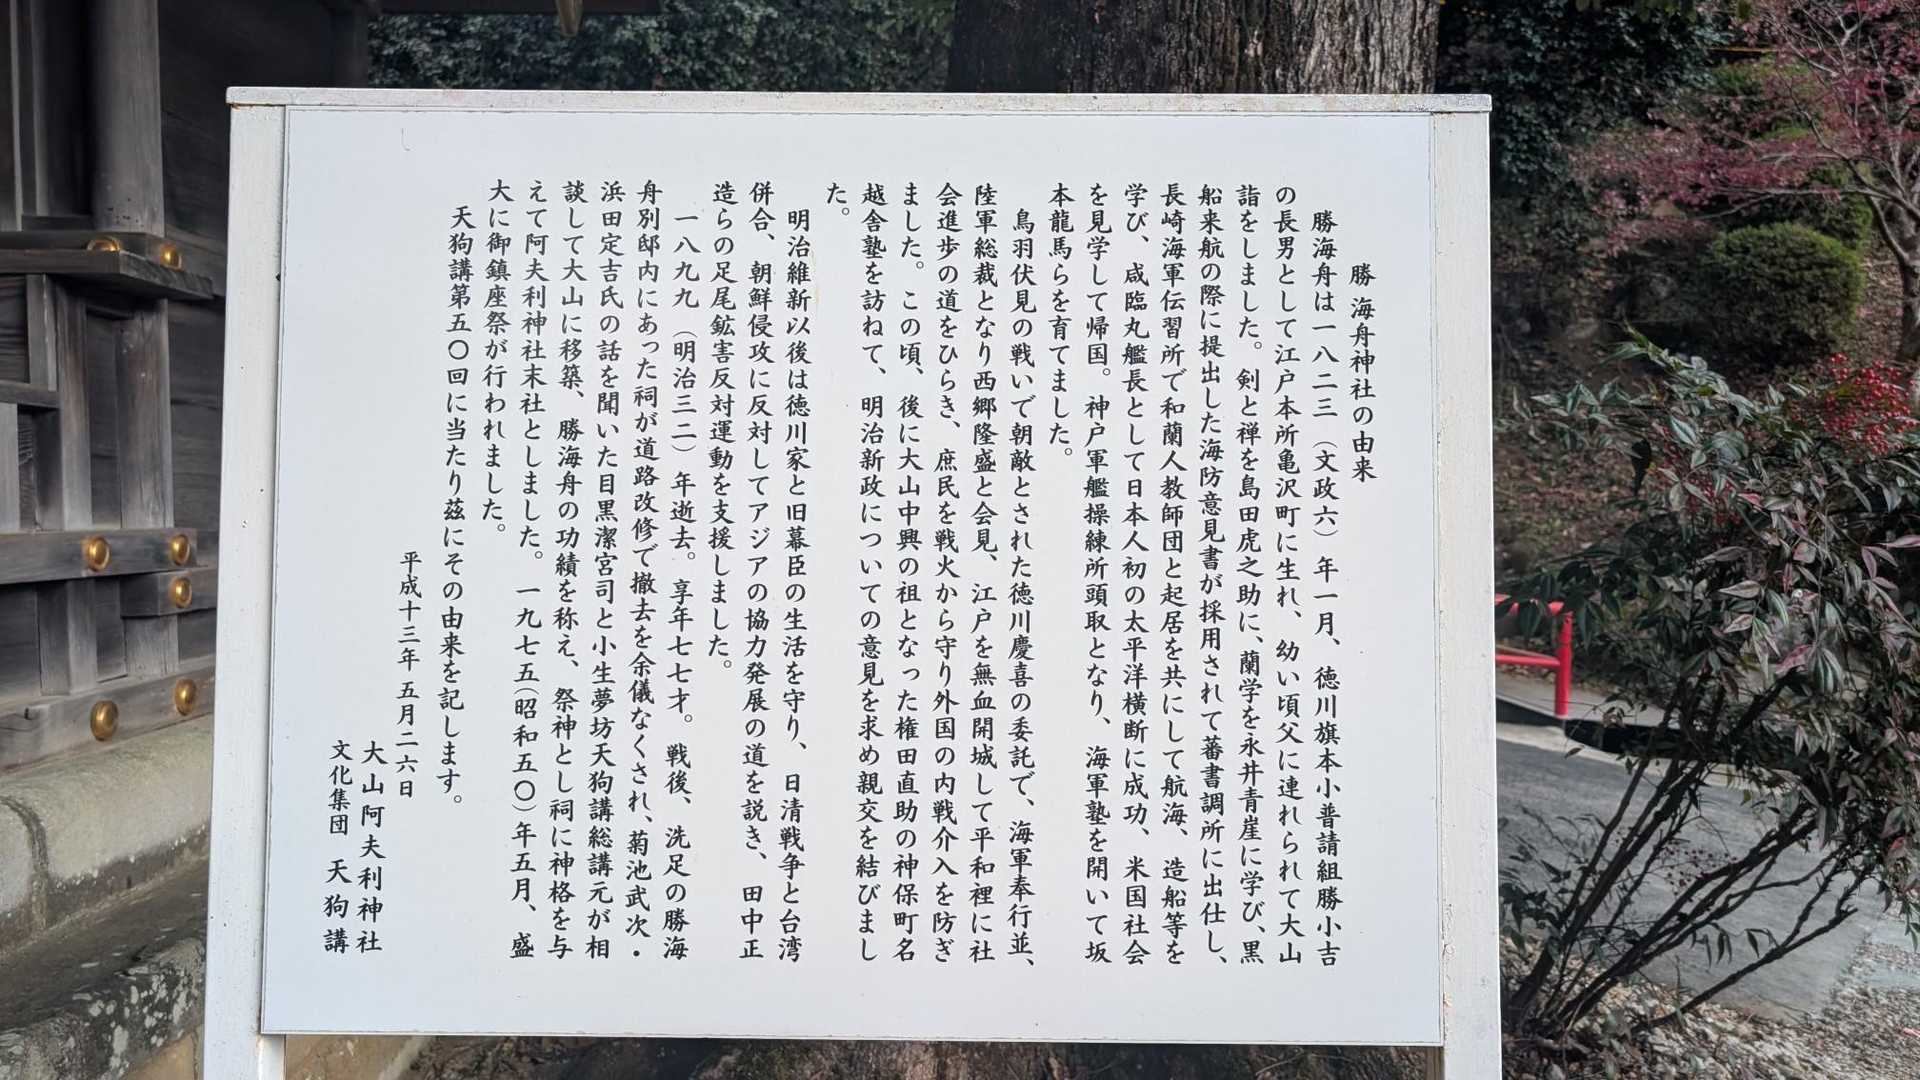 勝 海舟神社の由来
勝海舟は一八二三（文政六）年一月、徳川旗本小普請組勝小吉
の長男として江戸本所亀沢町に生れ、幼い頃父に連れられて大山
詣をしました。剣と禅を島田虎之助に、蘭学を永井青崖に学び、黒
船来航の際に提出した海防意見書が採用されて蕃書調所に出仕し、
長崎海軍伝習所で和蘭人教師団と起居を共にして航海、造船等を
学び、咸臨丸艦長として日本人初の太平洋横断に成功、米国社会
を見学して帰国。神戸軍艦操練所頭取となり、海軍塾を開いて坂
本龍馬らを育てました。
鳥羽伏見の戦いで朝敵とされた徳川慶喜の委託で、海軍奉行並、
陸軍総裁となり西郷隆盛と会見、江戸を無血開城して平和裡に社
会進歩の道をひらき、庶民を戦火から守り外国の内戦介入を防ぎ
ました。この頃、後に大山中興の祖となった権田直助の神保町名
越舎塾を訪ねて、明治新政についての意見を求め親交を結びまし
た。
明治維新以後は徳川家と旧幕臣の生活を守り、日清戦争と台湾
併合、朝鮮侵攻に反対してアジアの協力発展の道を説き、田中正
造らの足尾鉱害反対運動を支援しました。
一八九九（明治三二）年逝去。享年七七才。戦後、洗足の勝海
舟別邸内にあった祠が道路改修で撤去を余儀なくされ、菊池武次・
浜田定吉氏の話を聞いた目黒潔宮司と小生夢坊天狗講総講元が相
談して大山に移築、勝海舟の功績を称え、祭神とし祠に神格を与
えて阿夫利神社末社としました。一九七五（昭和五〇）年五月、盛
大に御鎮座祭が行われました。
天狗講第五〇回に当たり茲にその由来を記します。
平成十三年 五月二六日
大山阿夫利神社
文化集団 天狗講